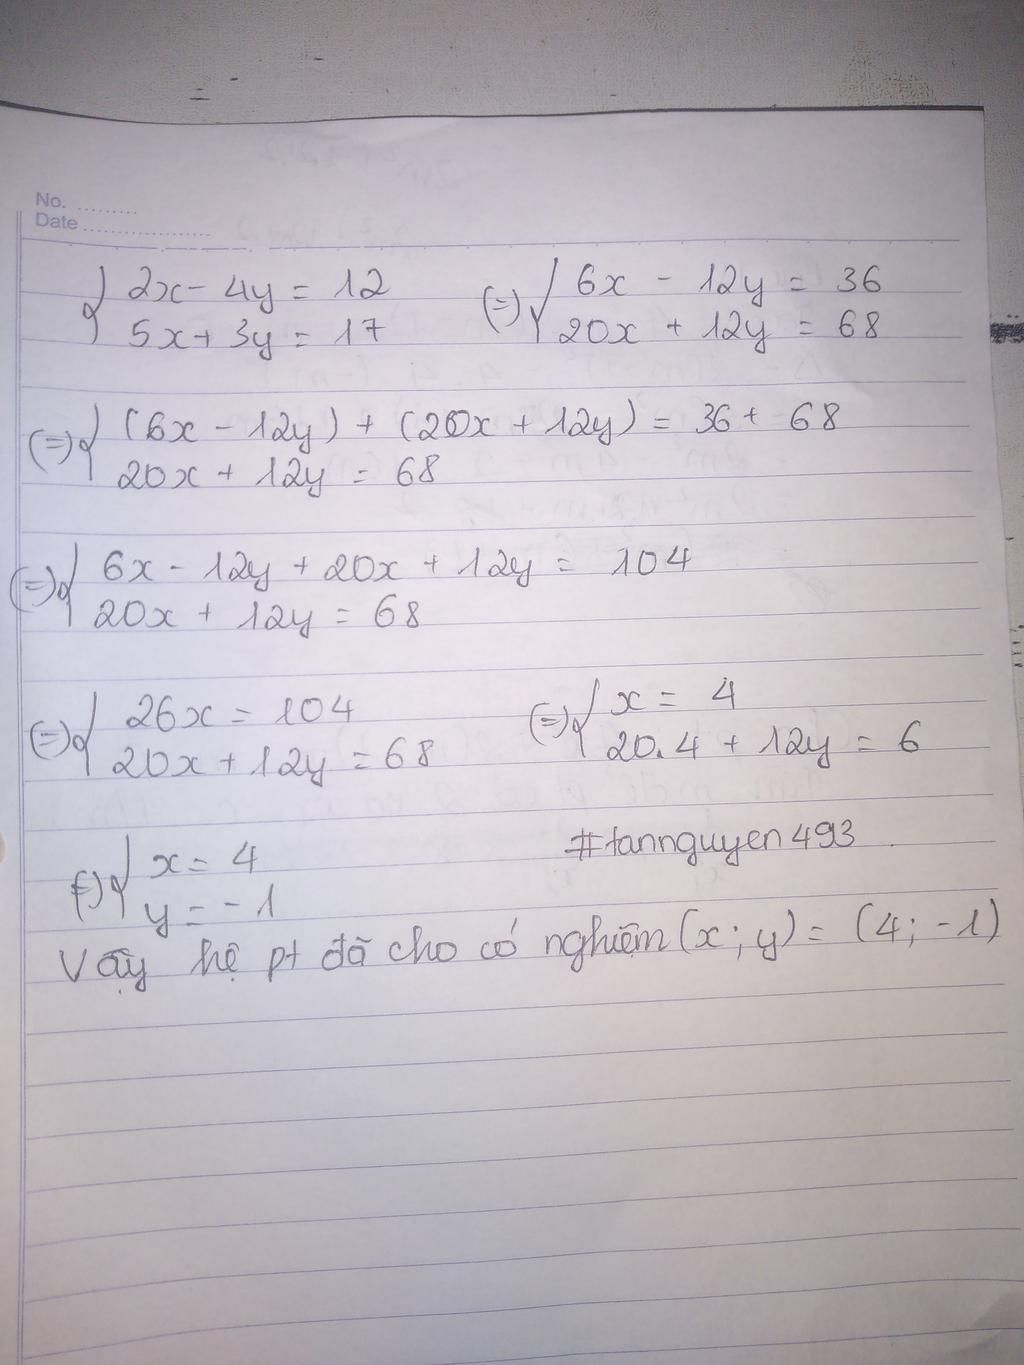 No. ........
Date ..................
{ 2x - 4y = 12 (=) { 6x - 12y = 36
5x + 3y = 17 20x + 12y = 68
(=) { (6x - 12y) + (20x + 12y) = 36 + 68
20x + 12y = 68
(=) { 6x - 12y + 20x + 12y = 104
20x + 12y = 68
(=) { 26x = 104 (=) { x = 4
20x + 12y = 68 20.4 + 12y = 6
(=) { x = 4
#tannguyen493
y = -1
Vậy hệ pt đã cho có nghiệm (x; y) = (4; -1)